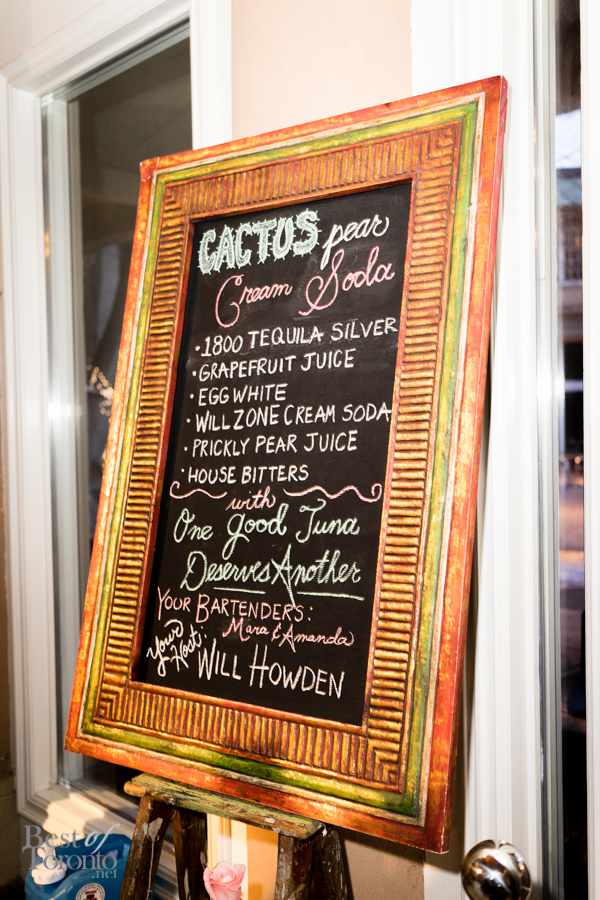 CACTUS pear
Cream Soda
• 1800 TEQUILA SILVER
• GRAPEFRUIT JUICE
• EGG WHITE
• WILLZONE CREAM SODA
• PRICKLY PEAR JUICE
• HOUSE BITTERS
with
One Good Tuna
Deserves Another
YOUR BARTENDERS:
Mara & Amanda
Your Host:
WILL HOWDEN
Best of
Toronto
.net